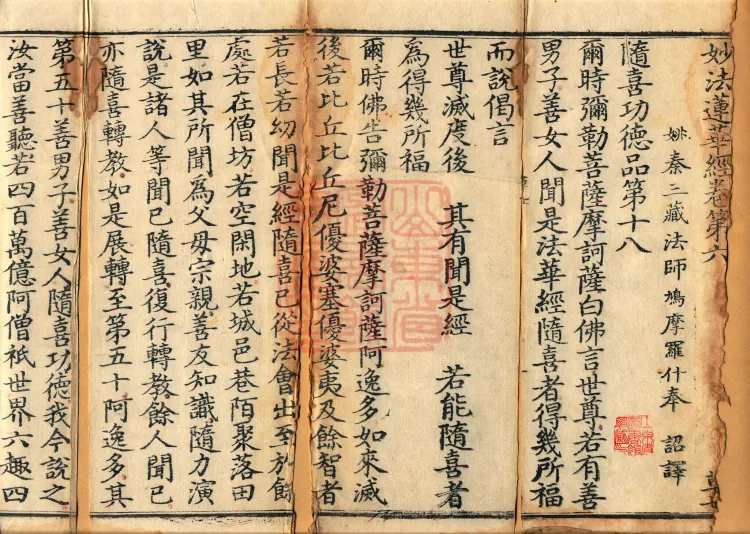 妙法蓮華經卷第六
姚秦三藏法師鳩摩羅什奉 詔譯
隨喜功德品第十八
爾時彌勒菩薩摩訶薩白佛言世尊若有善
男子善女人聞是法華經隨喜者得幾所福
而說偈言
世尊滅度後 其有聞是經 若能隨喜者
為得幾所福
爾時佛告彌勒菩薩摩訶薩阿逸多如來滅
後若比丘比丘尼優婆塞優婆夷及餘智者
若長若幼聞是經隨喜已從法會出至於餘
處若在僧坊若空閑地若城邑巷陌聚落田
里如其所聞為父母宗親善友知識隨力演
說是諸人等聞已隨喜復行轉教餘人聞已
亦隨喜轉教如是展轉至第五十阿逸多其
第五十善男子善女人隨喜功德我今說之
汝當善聽若四百萬億阿僧祇世界六趣四